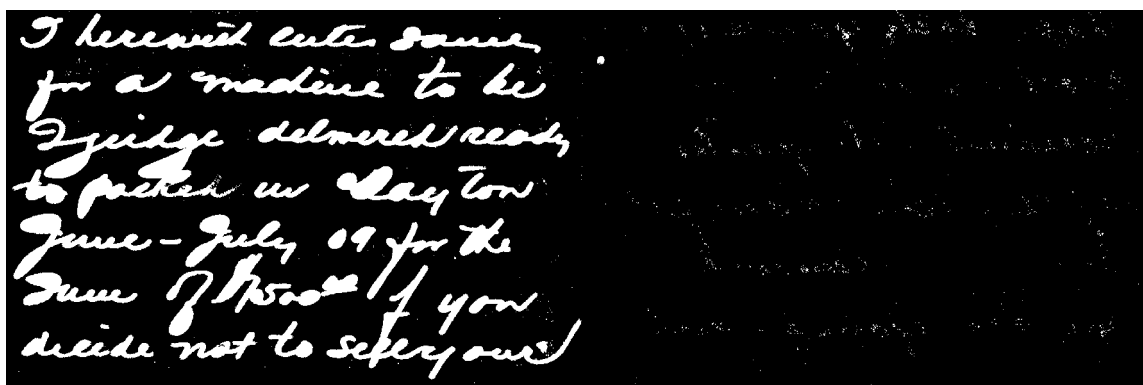 I herewith enter same
for a machine to be
I judge delivered ready
to packed in Dayton
June - July 09 for the
Sum of $7500⁰⁰ If you
decide not to sell your